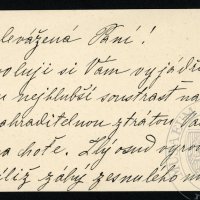 levážená Paní!
voluji si Vám vyjádři
nejhlubší soustrast na
ahraditelnou ztrátou Va
na hotě. Zlý osud vyrv
příliš záhy zesnulého m